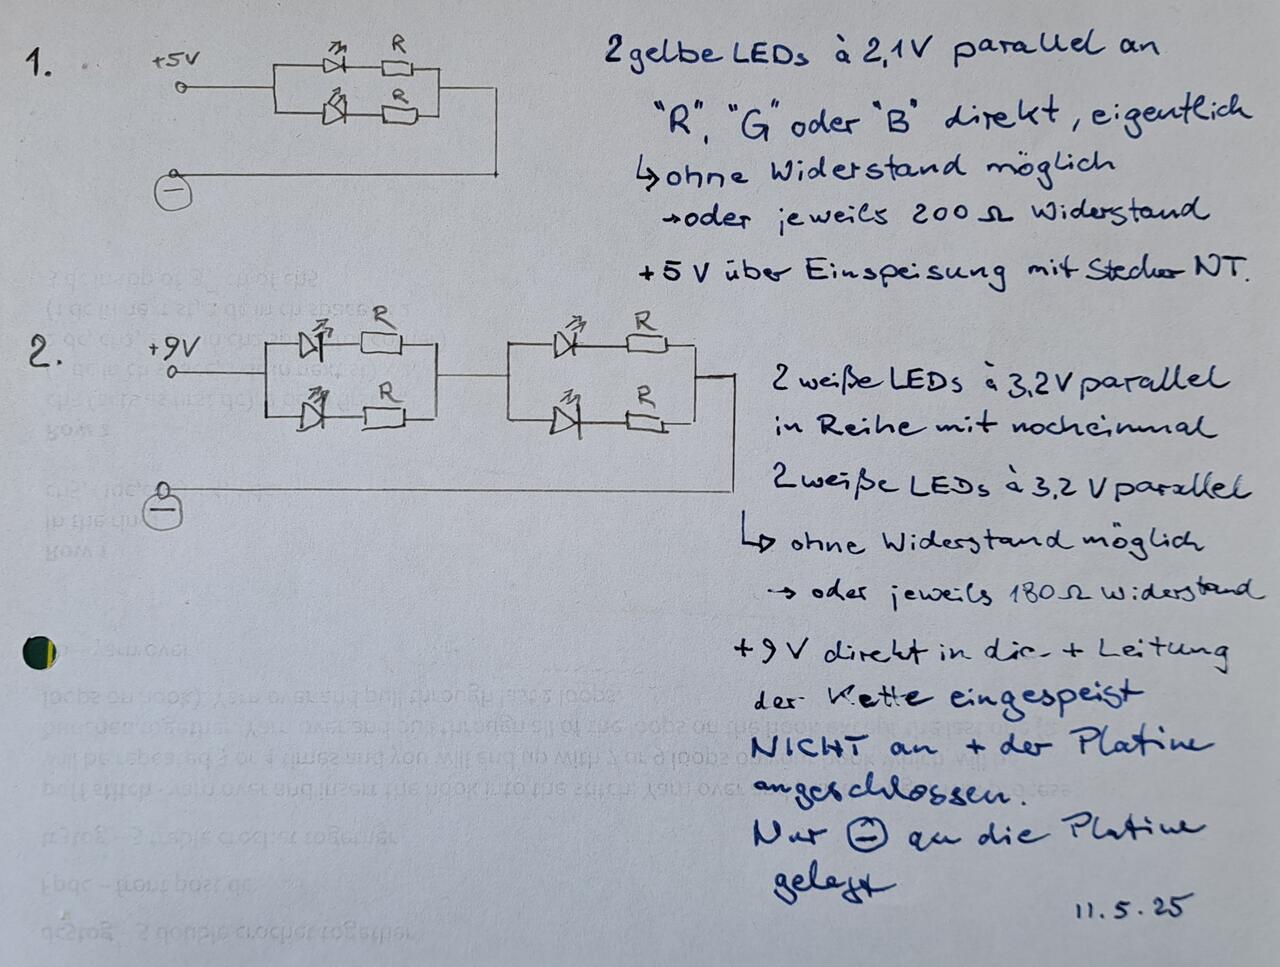 1.
+5V
R
R
−
2 gelbe LEDs à 2,1V parallel an
"R", "G" oder "B" direkt, eigentlich
↳ ohne Widerstand möglich
→ oder jeweils 200 Ω Widerstand
+5 V über Einspeisung mit Stecker NT.
2.
+9V
R
R
R
R
−
2 weiße LEDs à 3,2V parallel
in Reihe mit nocheinmal
2 weiße LEDs à 3,2 V parallel
↳ ohne Widerstand möglich
→ oder jeweils 180 Ω Widerstand
+9 V direkt in die + Leitung
der Kette eingespeist
NICHT an + der Platine
angeschlossen.
Nur ⊖ an die Platine
gelegt
11.5.25